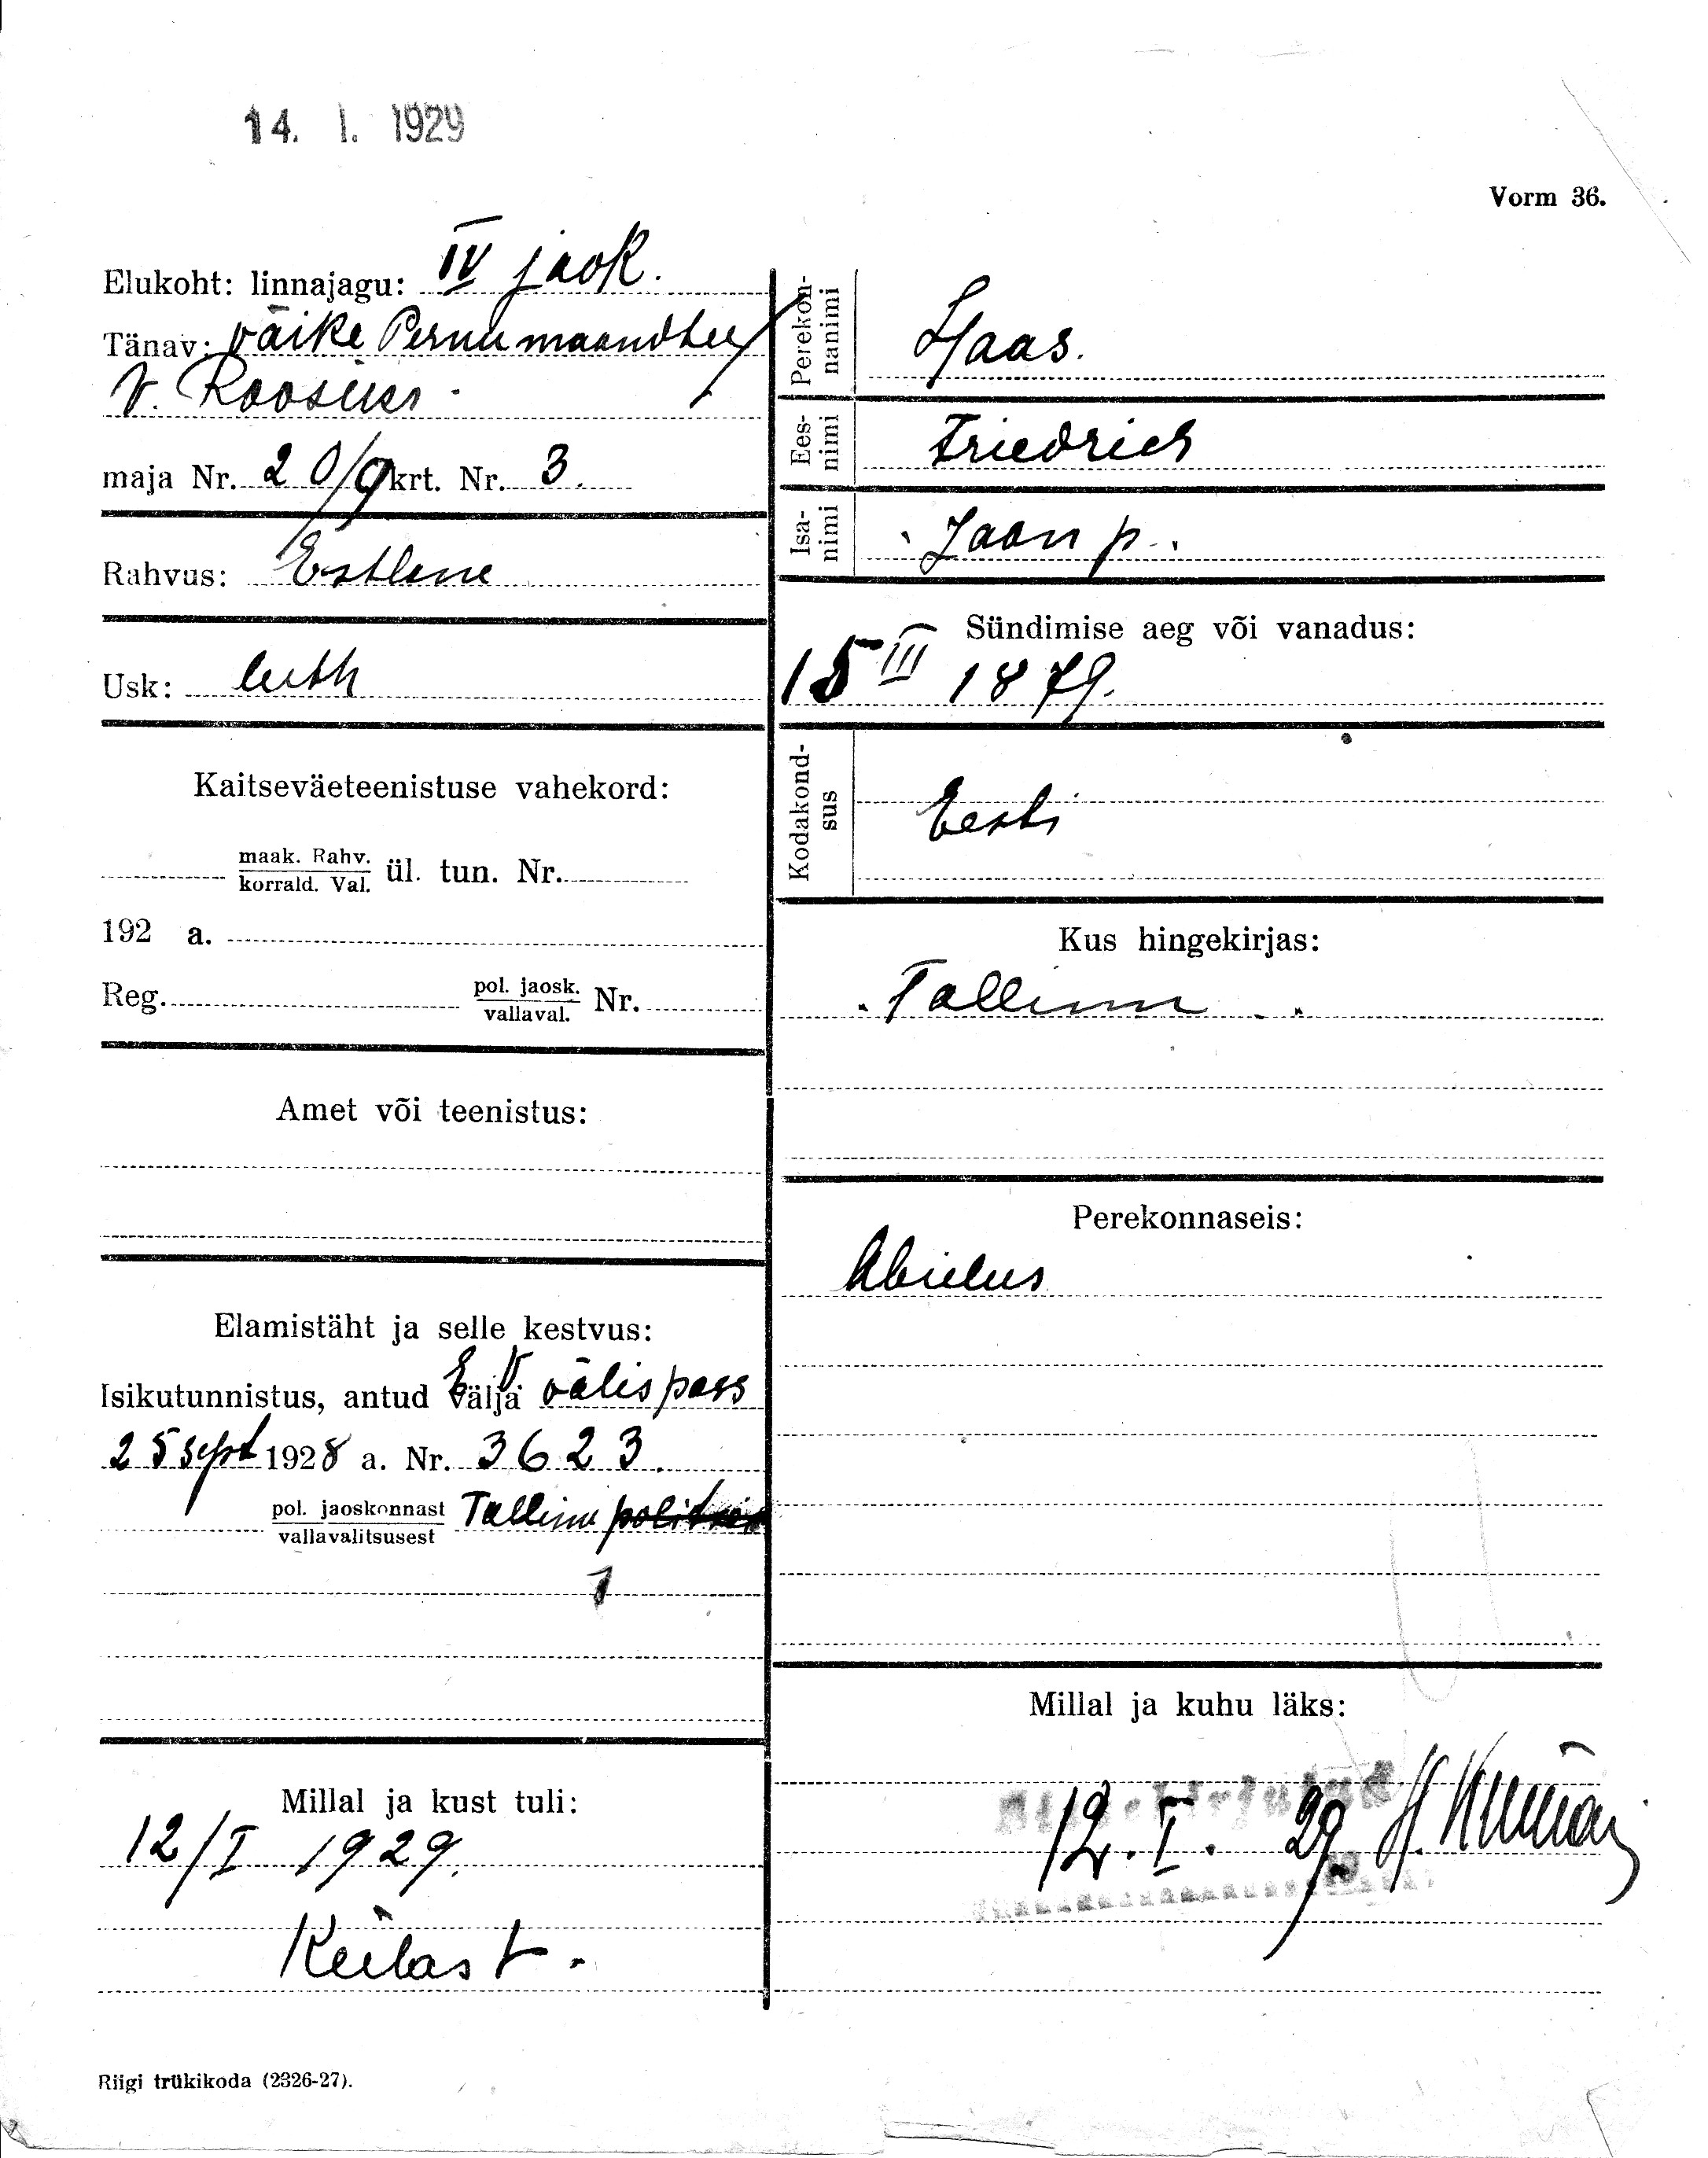 14. I. 1929
Vorm 36.
Elukoht: linnajagu: IV jaok.
Tänav: väike Pernu maandtee
V. Roosikr
maja Nr. 20/9 krt. Nr. 3.
Rahvus: Estlane
Usk: luth
Kaitseväeteenistuse vahekord:
maak. Rahv.
korrald. Val. ül. tun. Nr.
192 a.
Reg. pol. jaosk.
vallaval. Nr.
Amet või teenistus:
Elamistäht ja selle kestvus:
E V
Isikutunnistus, antud välja välispass
25 sept 1928 a. Nr. 3623.
pol. jaoskonnast
vallavalitsusest Tallinn
Millal ja kust tuli:
12/I 1929.
Keilast.
Perekonnanimi
Haas.
Eesnimi
Friedrich
Isanimi
Jaan p.
Sündimise aeg või vanadus:
15 III 1879.
Kodakondsus
Eesti
Kus hingekirjas:
Tallinn
Perekonnaseis:
Abielus
Millal ja kuhu läks:
12. I. 29.
Riigi trükikoda (2326-27).